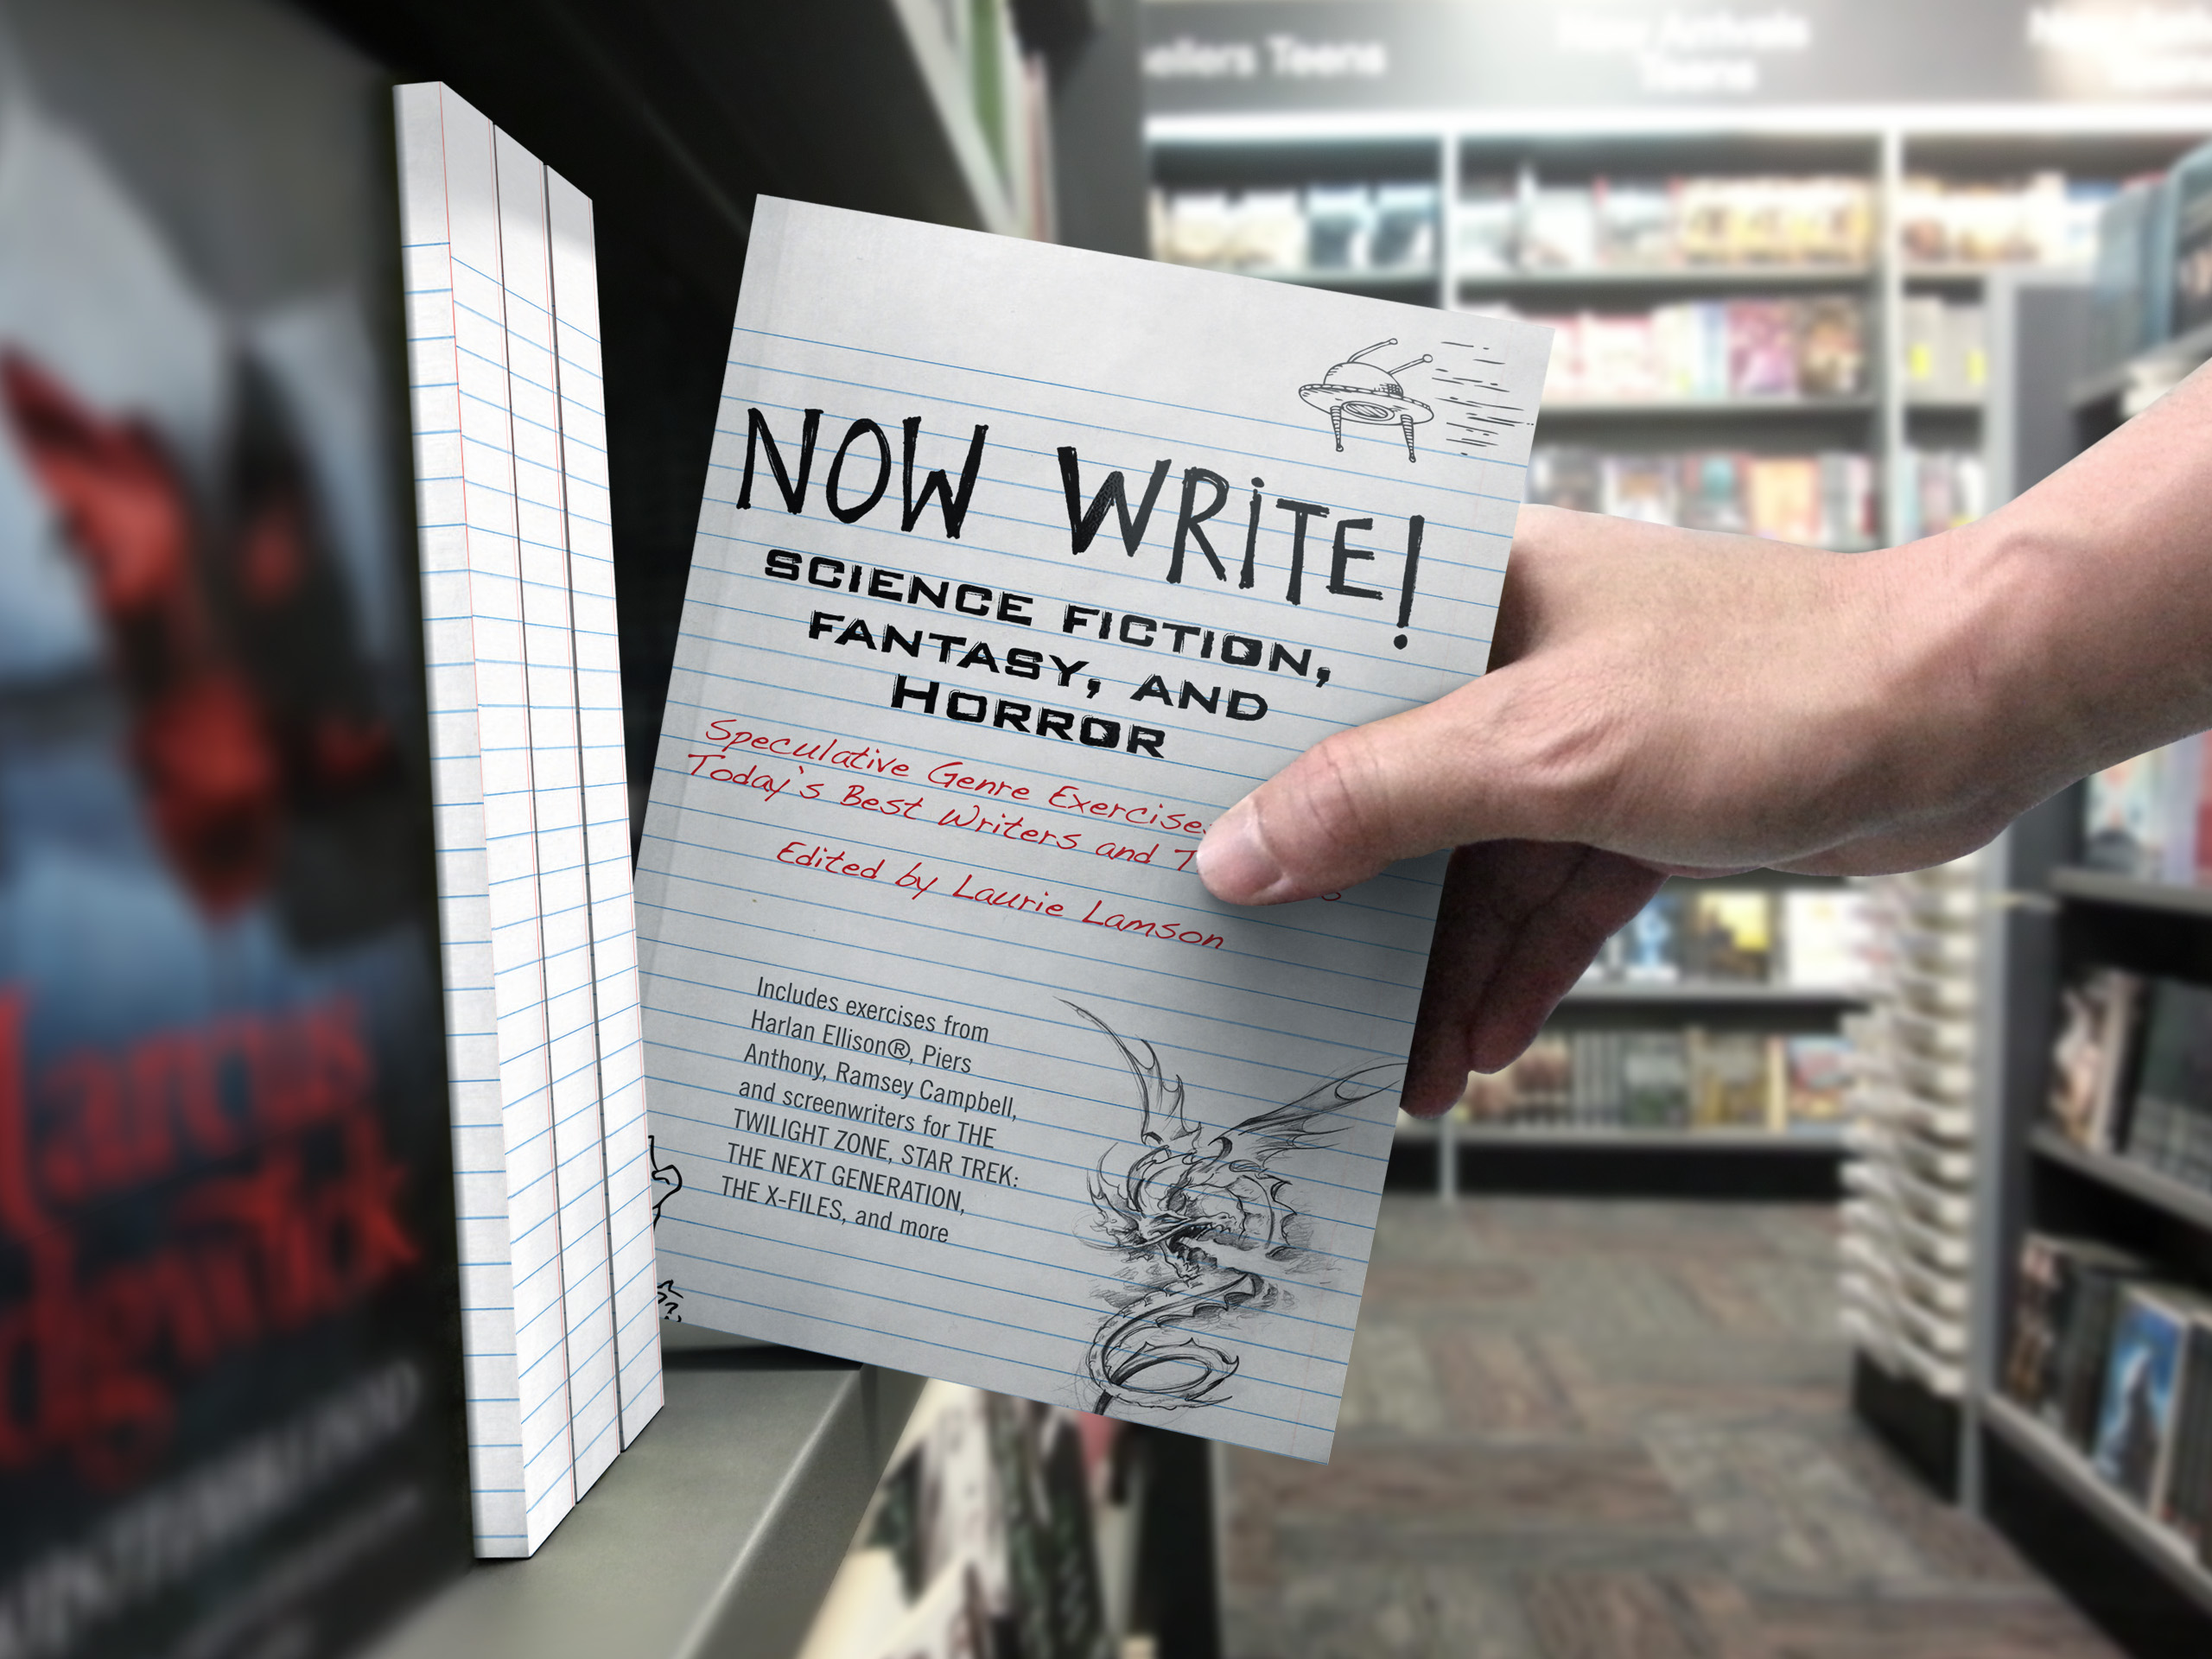 NOW WRITE!
SCIENCE FICTION,
FANTASY, AND
HORROR
Speculative Genre Exercises
Today's Best Writers and
Edited by Laurie Lamson
Includes exercises from
Harlan Ellison®, Piers
Anthony, Ramsey Campbell,
and screenwriters for THE
TWILIGHT ZONE, STAR TREK:
THE NEXT GENERATION,
THE X-FILES, and more
Teens
New Arrivals
Teens